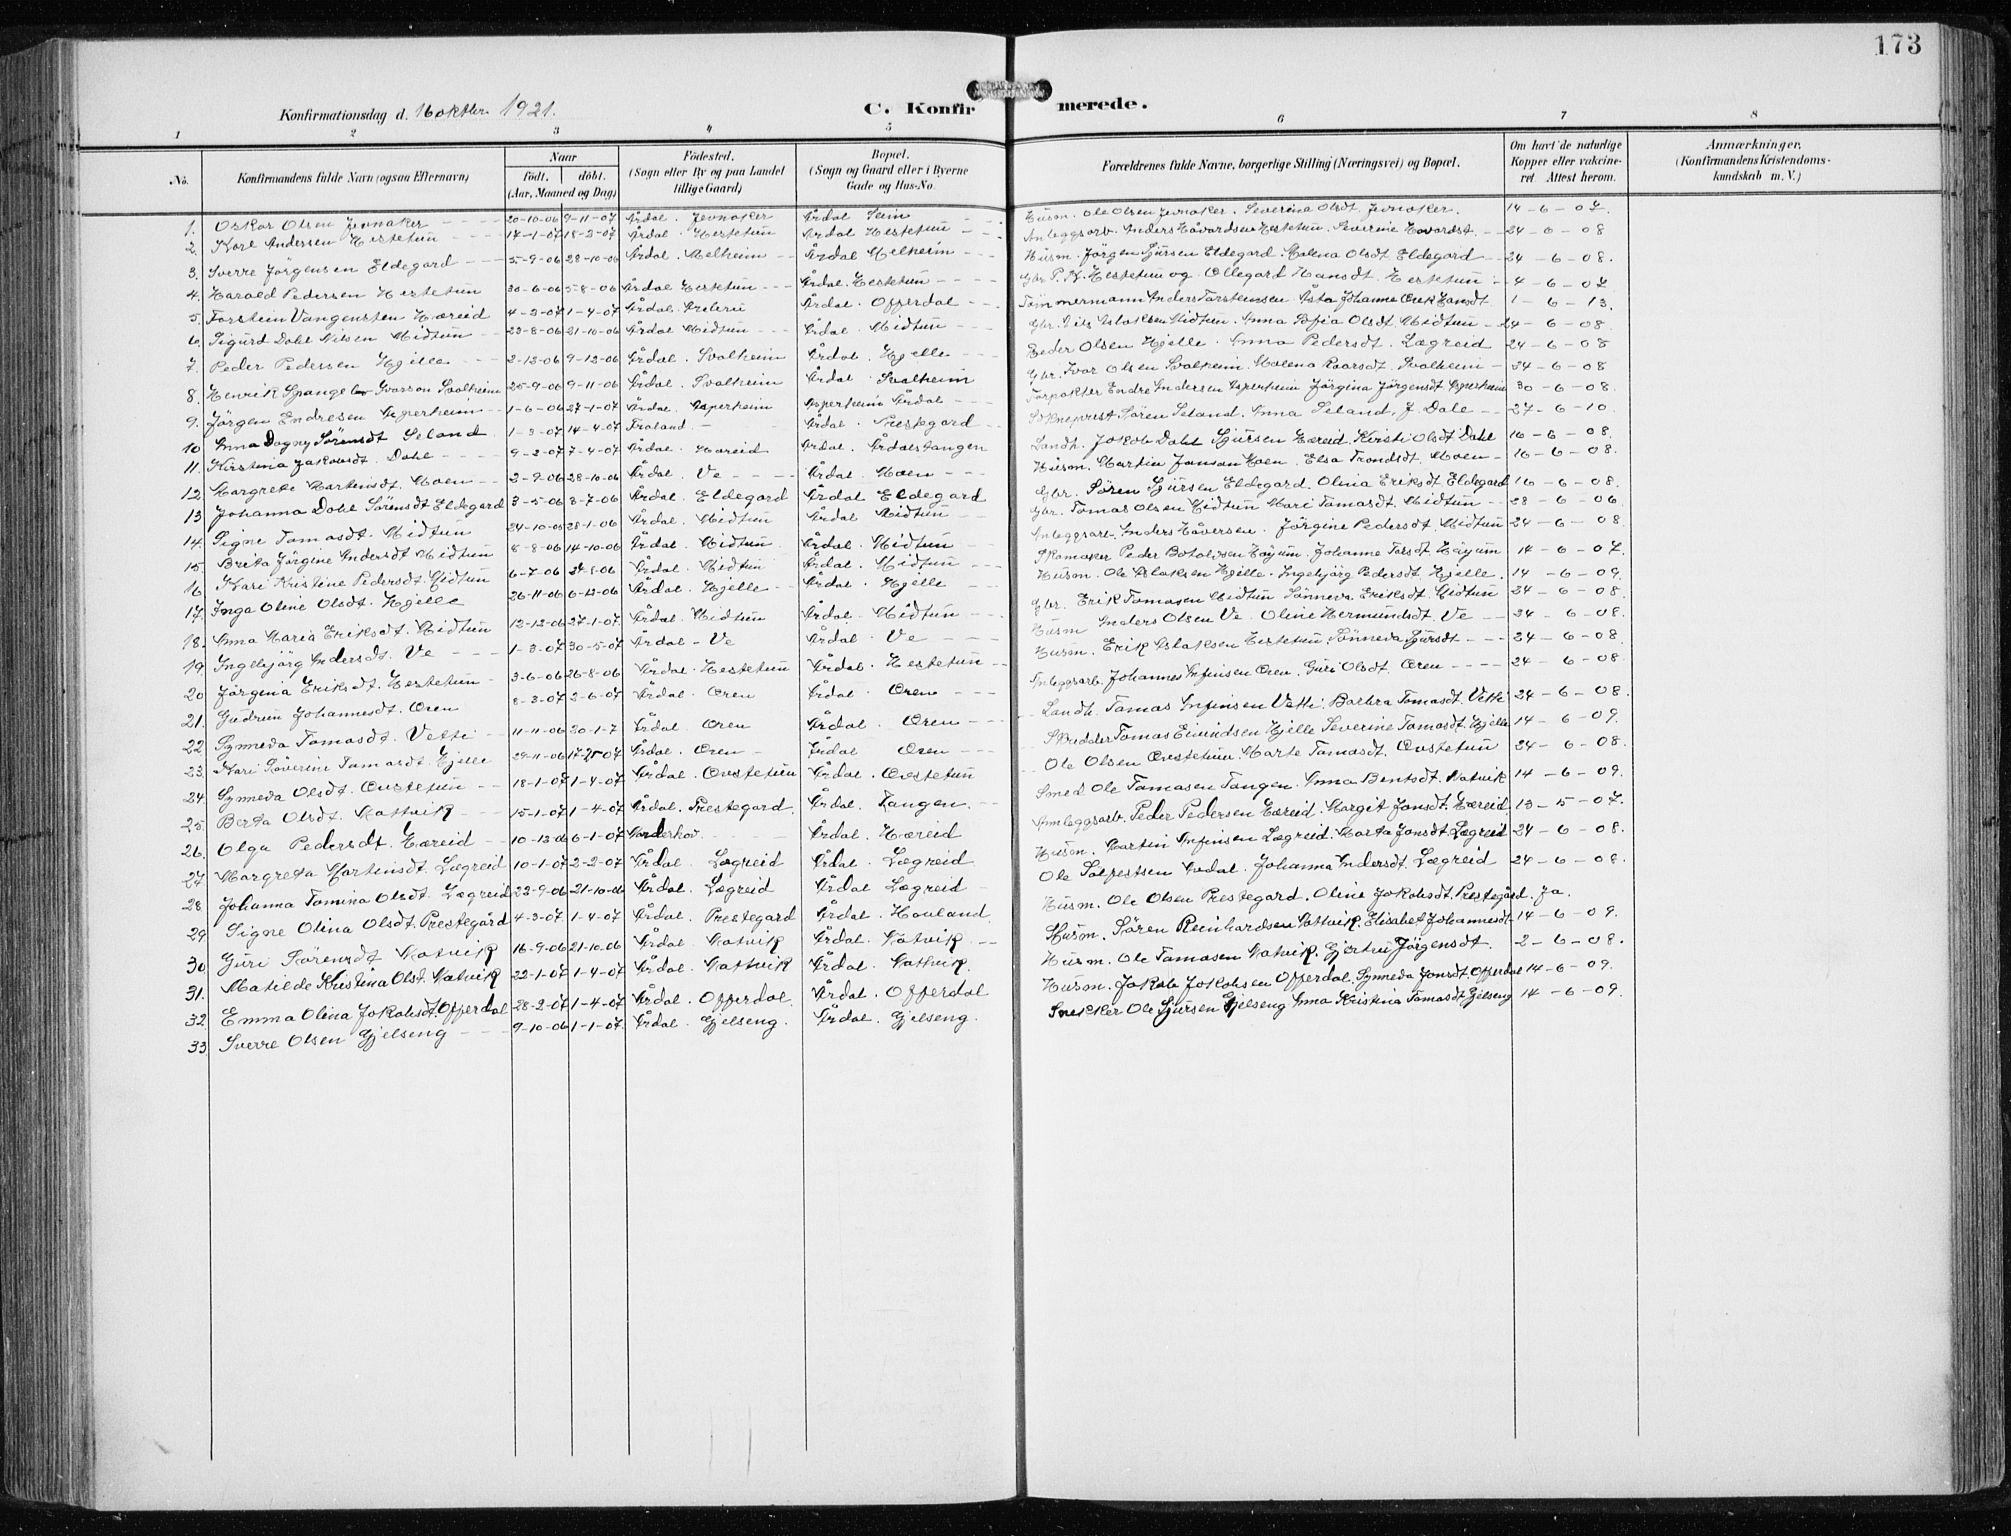 173
Konfirmationsdag d. 16 oktbr. 1921.
C. Konfirmerede.
1 2 3 4 5 6 7 8
No. Konfirmandens fulde Navn (ogsaa Efternavn) Naar født. døbt. (Aar, Maaned og Dag) Fødested. (Sogn eller By og paa Landet tillige Gaard) Bopæl. (Sogn og Gaard eller i Byerne Gade og Hus-No. Forældrenes fulde Navne, borgerlige Stilling (Næringsvei) og Bopæl. Om havt de naturlige Kopper eller vakcineret. Attest herom. Anmærkninger. (Konfirmandens Kristendomskundskab m. V.)
1. Oskar Olsen Jevnaker 20-10-06 9-11-07 Årdal. Jevnaker Årdal Seim Husm. Ole Olsen Jevnaker. Severina Olsdt. Jevnaker. 14-6-07.
2. Karl Andersen Hestetun 14-1-07 18-2-07 Årdal. Hestetun Årdal Hestetun Anleggsarb. Anders Håvardsen Hestetun. Severine Havardst. 24-6-08
3. Sverre Jörgensen Eldegard 5-9-06 28-10-06 Årdal. Melheim Årdal Melheim Husm. Jörgen Sjursen Eldegard. Malena Olsdt Eldegard 24-6-08.
4. Harald Pedersen Hestetun 30-6-06 5-8-06 Årdal Hestetun Årdal. Hestetun Gbr. P. N. Hestetun og Ollegard Hansdt Hestetun 4-6-07
5. Torstein Vangensten Hæreid 4-2-07 1-4-07 Årdal. Årdal. Offerdal Tömmermann Anders Torsteinsen Åsta Johanne Hansdt 1-6-13.
6. Sigurd Dahl Nilsen Midtun 23-8-06 21-10-06 Årdal Midtun Årdal. Midtun Gbr. Nils Aslaksen Midtun. Anna Sofia Olsdt. Midtun 24-6-08.
7. Peder Pedersen Hjelle 2-12-06 9-12-06 Årdal. Svalheim Årdal. Hjelle Peder Olsen Hjelle. Anna Pedersdt. Lægreid 24-6-08
8. Henrik Spangelow Ivarson Svalheim 25-9-06 9-11-06 Årdal. Svalheim Årdal. Svalheim Gbr. Ivar Olsen Svalheim. Malena Roarsdt. Svalheim 24-6-08
9. Jörgen Endresen Asperheim 1-6-06 27-1-07 Årdal. Asperheim Asperheim Årdal Forpakter Endre Andersen Asperheim Jörgina Jörgensdt Asperheim 30-6-08.
10 Anna Dagny Sörensdt Seland 1-3-07 14-4-07 Froland. Årdal. Prestegard Sokneprest Sören Seland. Anna Seland, f. Dale 27-6-10.
11. Kirstina Jakobsdt. Dahl 9-2-07 7-4-07 Årdal. Hæreid Årdal. Årdalstangen Landh. Jakob Dahl Sjursen Hæreid. Kirsti Olsdt Dahl 16-6-08.
12. Margrete Martinsdt. Moen 2-9-06 28-10-06 Årdal. Ve Årdal. Moen Husm. Martin Jonson Moen. Elsa Trondsdt. Moen 16-6-08.
13 Johanna Dahl Sörensdt Eldegard 3-5-06 8-7-06 Årdal. Eldegard Årdal Eldegard Gbr. Sören Sjursen Eldegard. Olina Eriksdt Eldegard 16-6-08.
14. Signe Tomasdt. Midtun 24-10-05 28-1-06 Årdal. Midtun Årdal Midtun Gbr. Tomas Olsen Midtun Mari Tomasdt. Midtun 28-6-06
15. Brita Jörgine Andersdt Midtun 8-8-06 14-10-06 Årdal. Midtun Årdal. Midtun Anleggsarb. Anders Håversen. Jörgine Pedersdt Midtun 24-6-08.
16 Kari Kristine Pedersdt. Midtun 6-7-06 24-8-06 Årdal. Midtun Årdal. Midtun Skomaker Peder Botolvsen Höyum. Johanne Höyum 14-6-07.
17. Inga Oline Olsdt. Hjelle 26-11-06 6-12-06 Årdal. Hjelle Årdal. Hjelle Husm. Ole Aslaksen Hjelle. Ingebjörg Pedersdt. Hjelle. 14-6-09.
18. Anna Maria Eriksdt. Midtun 12-12-06 27-1-07 Årdal. Midtun Årdal. Midtun Gbr. Erik Tomasen Midtun Sönneva Eriksdt. Midtun 24-6-08.
19. Ingebjörg Andersdt. Ve 1-3-07 30-5-07 Årdal - Ve Årdal. Ve Husm Anders Olsen Ve. Oline Hermundsdt. Ve 24-6-08.
20 Jörgina Eriksdt. Hestetun 3-6-06 26-8-06 Årdal. Hestetun Årdal. Hestetun Husm. Erik Aslaksen Hestetun. Sönneva Sjursdt 24-6-08.
21. Gudrun Johannesdt. Øren 8-3-07 2-6-07 Årdal. Øren Årdal. Øren Anleggsarb. Johannes Anfinsen Øren. Guri Olsdt. Øren 24-6-08.
22 Synneva Tomasdt. Vetti 11-11-06 20-1-7 Årdal. Øren Årdal. Øren Landh. Tomas Anfinsen Vetti. Barbra Tomasdt. Vetti 24-6-08.
23. Kari Säverine Tomasdt. Hjelle 29-11-06 17-2-07 Årdal. Øren Årdal Øren Skredder Tomas Eivindsen Hjelle Severine Tomasdt. Hjelle 14-6-09.
24. Synneva Olsdt. Øvstetun 18-1-07 1-4-07 Årdal. Øvstetun Årdal. Øvstetun Ole Olsen Øvstetun. Marte Tomasdt. Øvstetun 24-6-08.
25. Berta Olsdt. Nattvik 15-1-07 1-4-07 Årdal. Prestegard. Årdal. Tangen. Smed Ole Tomasen Tangen. Anna Bentsdt. Natvik 14-6-09.
26. Olga Pedersdt. Hæreid 10-12-06 6-1-07 Norderhov. Årdal. Hæreid Anleggsarb. Peder Pedersen Hæreid. Margit Jonsdt. Hæreid 13-5-07.
27 Margreta Martinsdt. Lægreid 10-1-07 2-2-07 Årdal. Lægreid Årdal. Lægreid Husm. Martin Anfinsen Lægreid. Marta Jonsdt. Lægreid 24-6-08.
28 Johanna Tomina Olsdt. Lægreid 22-9-06 21-10-06 Årdal. Lægreid Årdal Lægreid Ole Årdal. Johanna Andersdt. Lægreid 24-6-08.
29 Signe Olina Olsdt. Prestegård 4-3-07 1-4-07 Årdal. Prestegard Årdal. Hovland. Husm. Ole Olsen Prestegard. Oline Jakobsdt. Prestegård. Ja.
30. Guri Sörensdt Natvik 16-9-06 21-10-06 Årdal. Natvik Årdal. Natvik Husm. Sören Reinhardsen Nattvik. Elisabet Johannesdt 14-6-09.
31. Matilde Kristina Olsdt. Natvik 22-1-07 1-4-07 Årdal. Nattvik Årdal. Nattvik. Husm. Ole Tomasen Natvik. Gjertru Jörgensdt. 2-6-08.
32. Emma Olina Jakobsdt. Offerdal 28-2-07 1-4-07 Årdal. Offerdal. Årdal. Offerdal Husm. Jakob Jakobsen Offerdal. Synneva Jonsdt. Offerdal 14-6-09.
33 Sverre Olsen Gjelseng 9-10-06 1-1-07. Årdal. Gjelseng. Årdal. Gjelseng. Snekker Ole Sjursen Gjelseng Anna Kristina Tomasdt. Gjelseng 14-6-09.